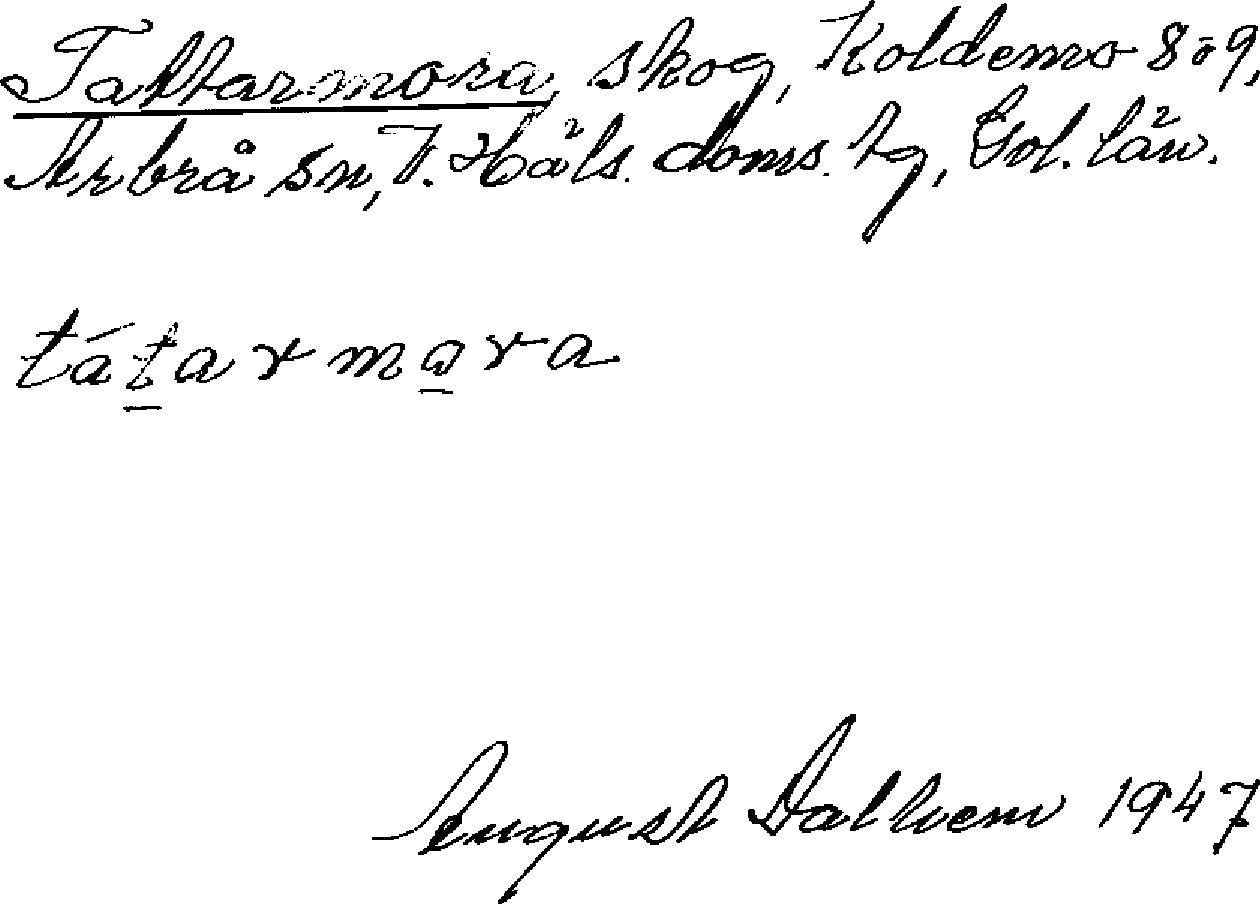 Tattarmora, skog, Koldemo 8 o 9,
Arbrå sn, V. Häls. doms. hg, Gvl. län.
tátarmara
August Dalhem 1947